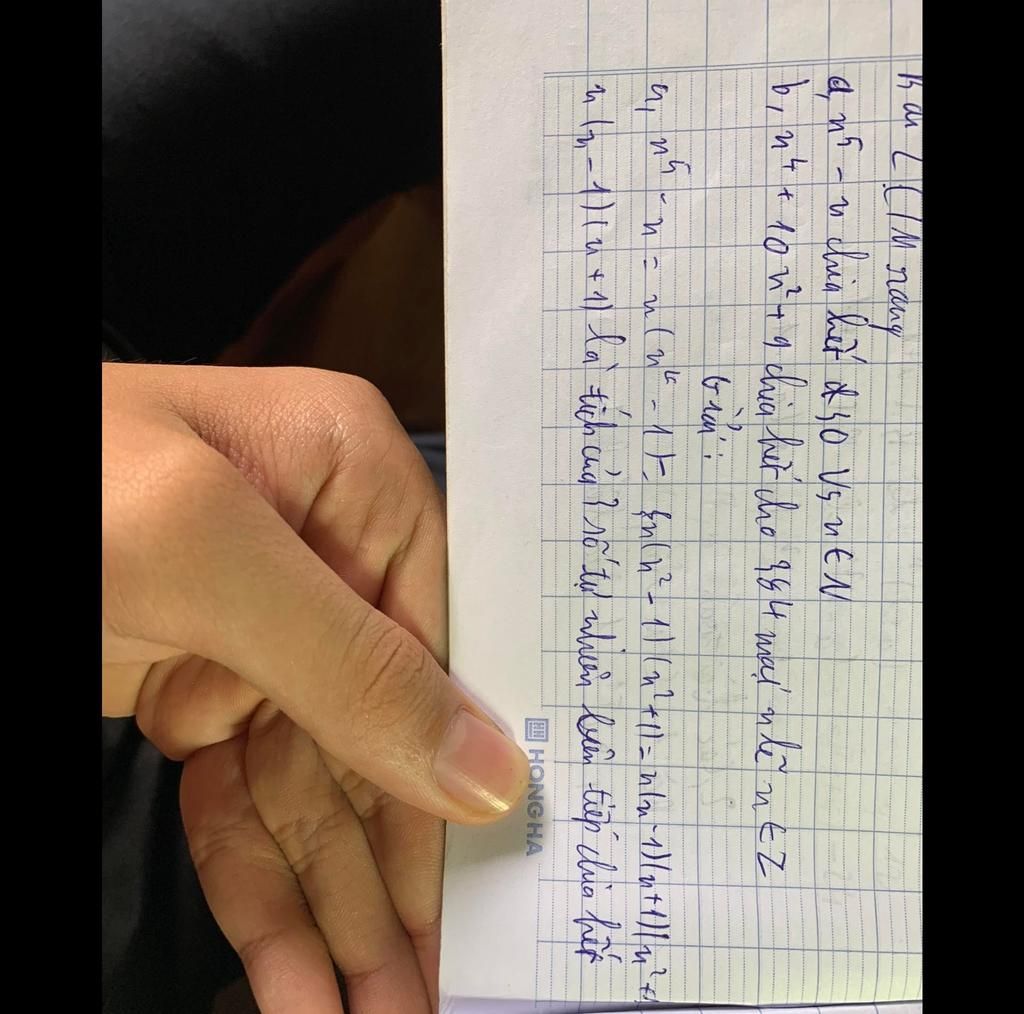 Bài 2 CM rằng
a, n⁵ - n chia hết cho 30 Vs n ∈ N
b, n⁴ + 10n² + 9 chia hết cho 384 mọi n lẽ n ∈ Z
Giải:
a, n⁵ - n = n(n⁴ - 1) = n(n² - 1)(n² + 1) = n(n - 1)(n + 1)(n² + 1
n(n - 1)(n + 1) là tích của 3 số tự nhiên liên tiếp chia hết
HONG HA